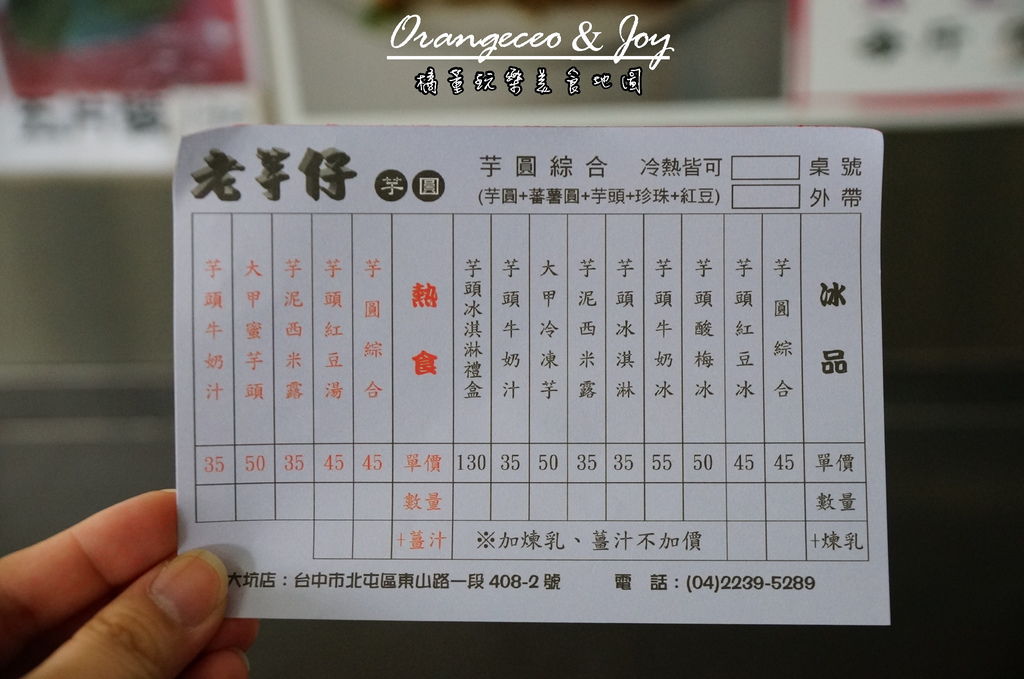 Orangeceo & Joy
橘童玩樂美食地圖
老芋仔 芋圓
芋圓綜合 冷熱皆可 桌號
(芋圓+蕃薯圓+芋頭+珍珠+紅豆) 外帶
冰品 單價 數量 +煉乳
芋圓綜合 45
芋頭紅豆冰 45
芋頭酸梅冰 50
芋頭牛奶冰 55
芋頭冰淇淋 35
芋泥西米露 35
大甲冷凍芋 50
芋頭牛奶汁 35
芋頭冰淇淋禮盒 130
※加煉乳、薑汁不加價
熱食 單價 數量 +薑汁
芋圓綜合 45
芋頭紅豆湯 45
芋泥西米露 35
大甲蜜芋頭 50
芋頭牛奶汁 35
大坑店：台中市北屯區東山路一段 408-2 號 電 話：(04)2239-5289